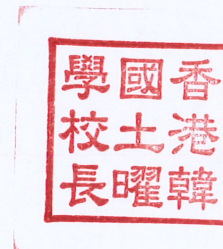 香港韓
國土曜
學校長